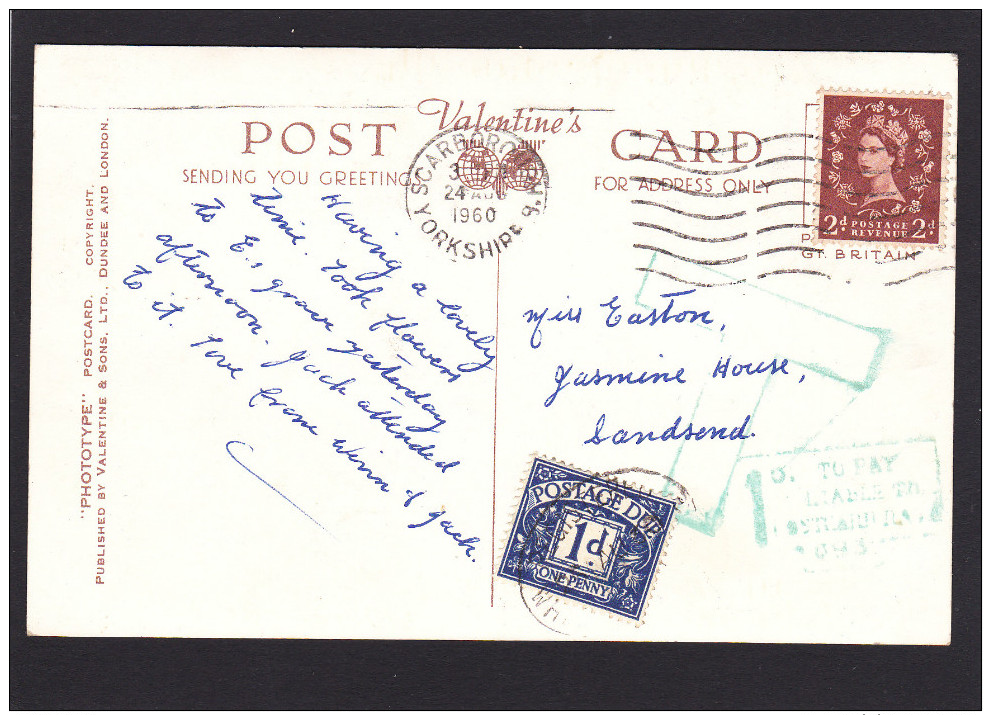 Valentine's
POST CARD
SENDING YOU GREETINGS
FOR ADDRESS ONLY
"PHOTOTYPE" POSTCARD. COPYRIGHT.
PUBLISHED BY VALENTINE & SONS, LTD., DUNDEE AND LONDON.
SCARBOROUGH
24 AUG
1960
YORKSHIRE
2d POSTAGE REVENUE 2d
GT. BRITAIN
Having a lovely
time. Took flowers
to E.s grave yesterday
afternoon. Jack attended
to it. Love from Winn & Jack.
Miss Easton,
Jasmine House,
Sandsend.
POSTAGE DUE
1d
ONE PENNY
TO PAY
LIABLE TO